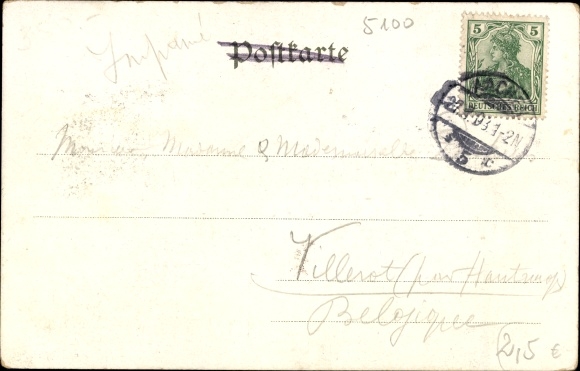 5100
Imprimé
Postkarte
5 5
DEUTSCHES REICH
1-2N
Monsieur, Madame & Mademoiselle
Villerot (par Hautrage)
Belgique
(2,5 €